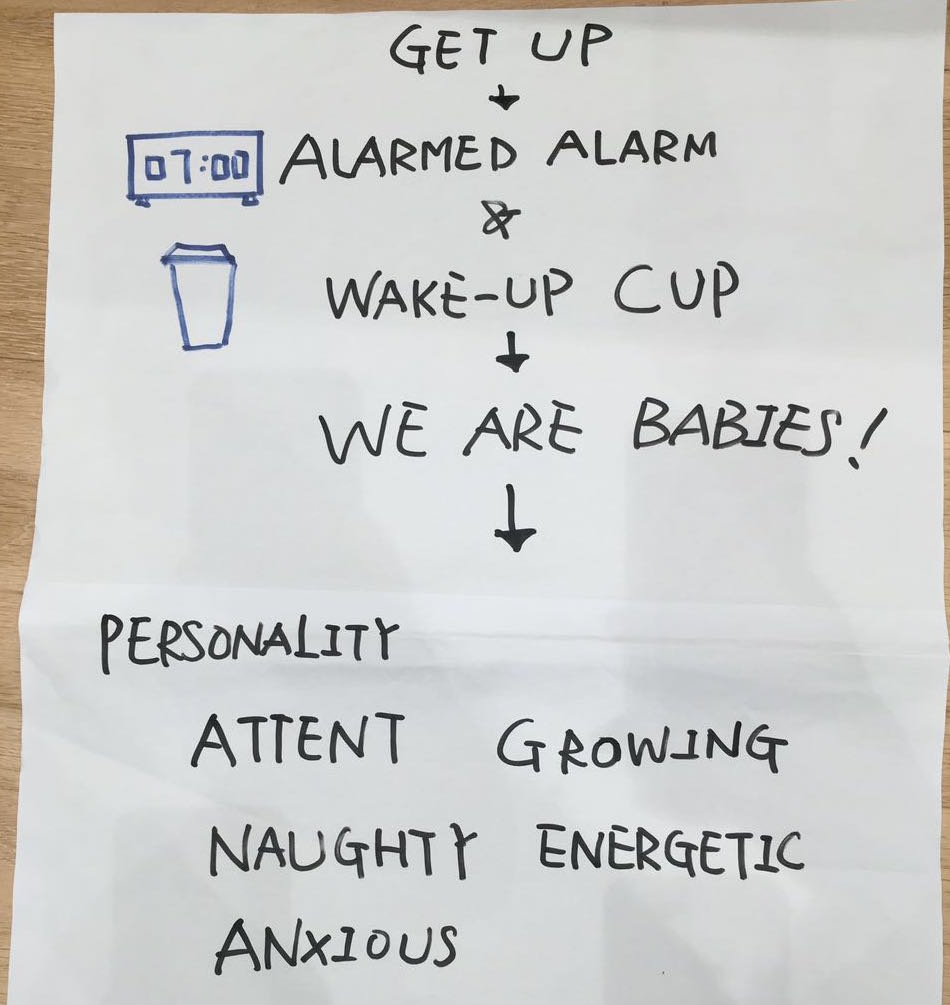 GET UP
07:00 ALARMED ALARM
&
WAKE-UP CUP
WE ARE BABIES!
PERSONALITY
ATTENT GROWING
NAUGHTY ENERGETIC
ANXIOUS